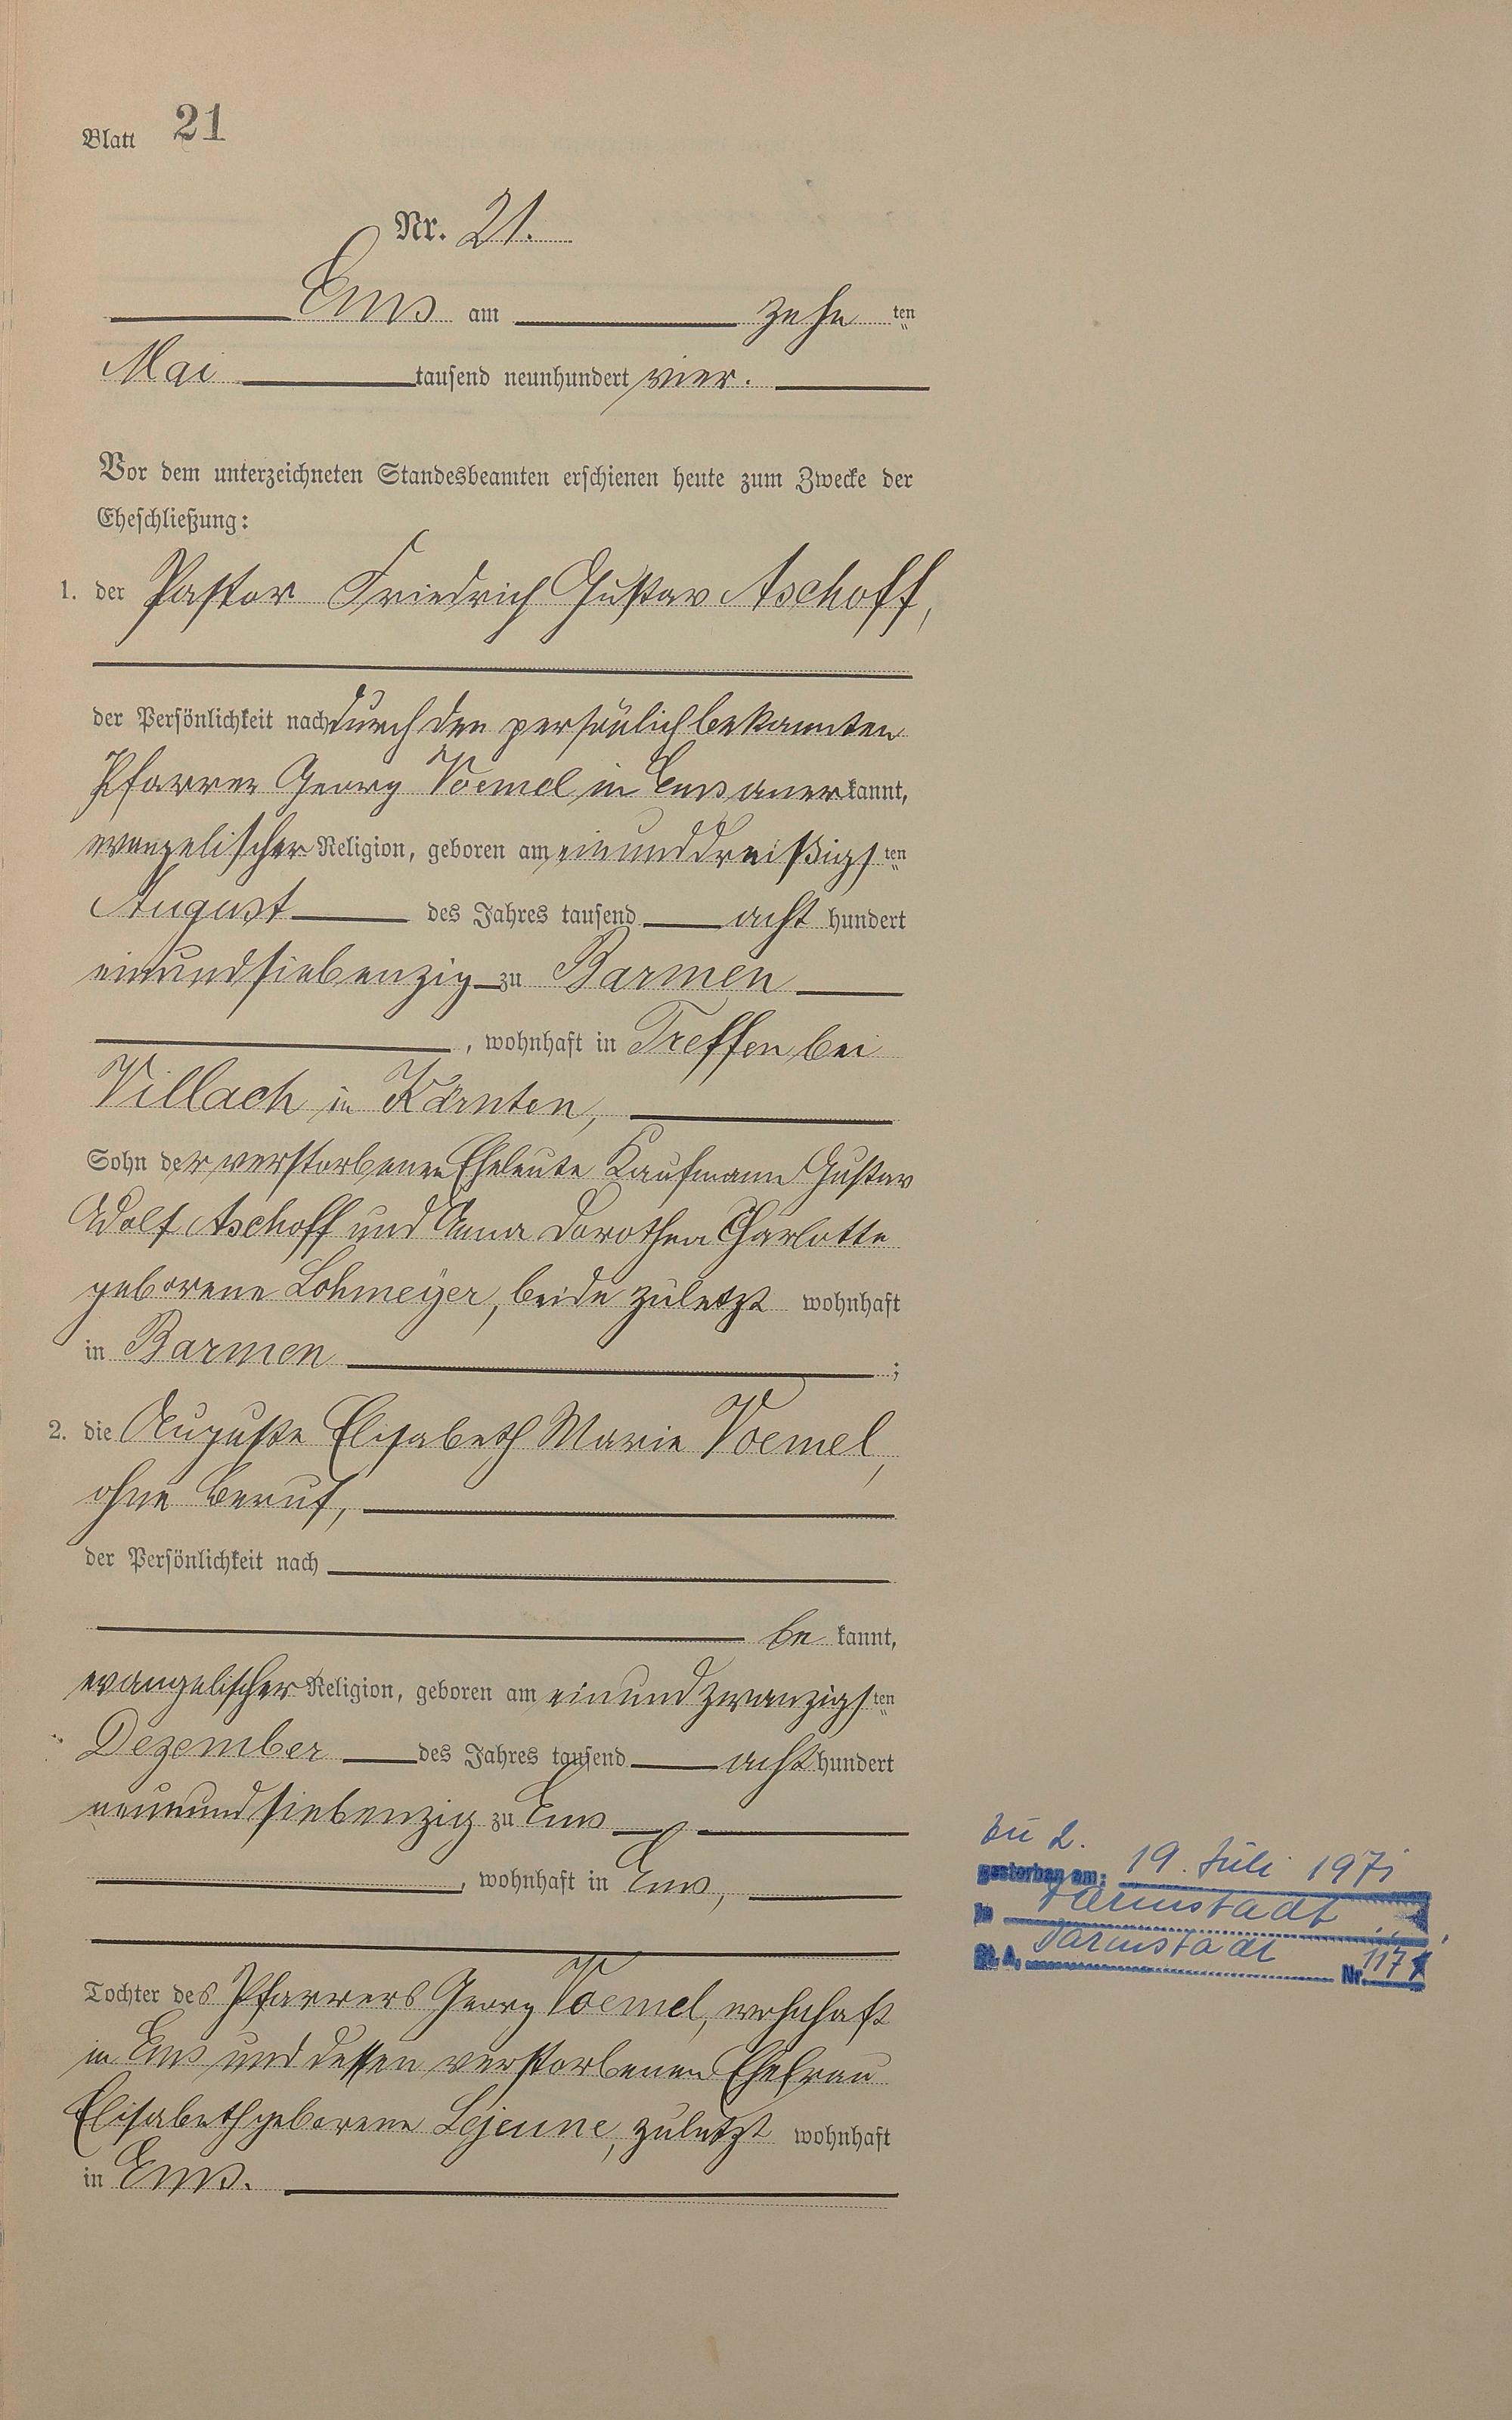 Blatt 21
Nr. 21.
Ems am zehn ten
Mai tausend neunhundert vier.
Vor dem unterzeichneten Standesbeamten erschienen heute zum Zwecke der
Eheschließung:
1. der Pastor Friedrich Gustav Aschoff,
der Persönlichkeit nach durch den persönlich bekannten
Pfarrer Georg Voemel in Ems anerkannt,
evangelischer Religion, geboren am einunddreißigsten
August des Jahres tausend acht hundert
einundsiebenzig zu Barmen
, wohnhaft in Treffen bei
Villach in Kärnten,
Sohn der verstorbenen Eheleute Kaufmann Gustav
Adolf Aschoff und Anna Dorothea Charlotte
geborene Lohmeyer, beide zuletzt wohnhaft
in Barmen ;
2. die Auguste Elisabeth Marie Voemel,
ohne Beruf,
der Persönlichkeit nach
be kannt,
evangelischer Religion, geboren am einundzwanzigsten
Dezember des Jahres tausend acht hundert
neunundsiebenzig zu Ems
, wohnhaft in Ems,
zu 2.
gestorben am: 19. Juli 1971
in Darmstadt
St. A. Darmstadt Nr. 1171
Tochter des Pfarrers Georg Voemel, wohnhaft
in Ems und dessen verstorbenen Ehefrau
Elisabeth geborene Lejeune, zuletzt wohnhaft
in Ems.